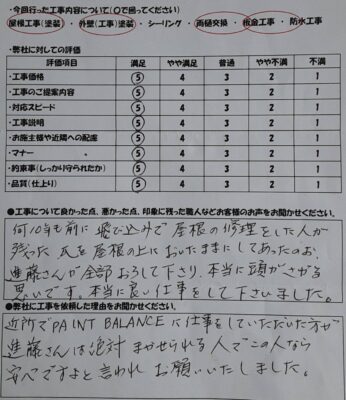 ・今回行った工事内容について(○で囲ってください)
屋根工事(塗装)・外壁(工事)塗装・シーリング・雨樋交換・板金工事・防水工事
・弊社に対しての評価
評価項目 満足 やや満足 普通 やや不満 不満
・工事価格 5 4 3 2 1
・工事のご提案内容 5 4 3 2 1
・対応スピード 5 4 3 2 1
・工事説明 5 4 3 2 1
・お施主様や近隣への配慮 5 4 3 2 1
・マナー 5 4 3 2 1
・約束事(しっかり守られたか) 5 4 3 2 1
・品質(仕上り) 5 4 3 2 1
●工事について良かった点、悪かった点、印象に残った職人などお客様のお声をお聞かせください。
何10年も前に飛び込みで屋根の修理をした人が
残った瓦を屋根の上においたままにしてあったのお、
進藤さんが全部おろして下さり、本当に頭がさがる
思いです。本当に良い仕事をして下さいました。
●弊社に工事を依頼した理由をお聞かせください。
近所でPAINT BALANCEに仕事をしていただいた方が
進藤さんは絶対まかせられる人でこの人なら
安心ですよと言われお願いいたしました。